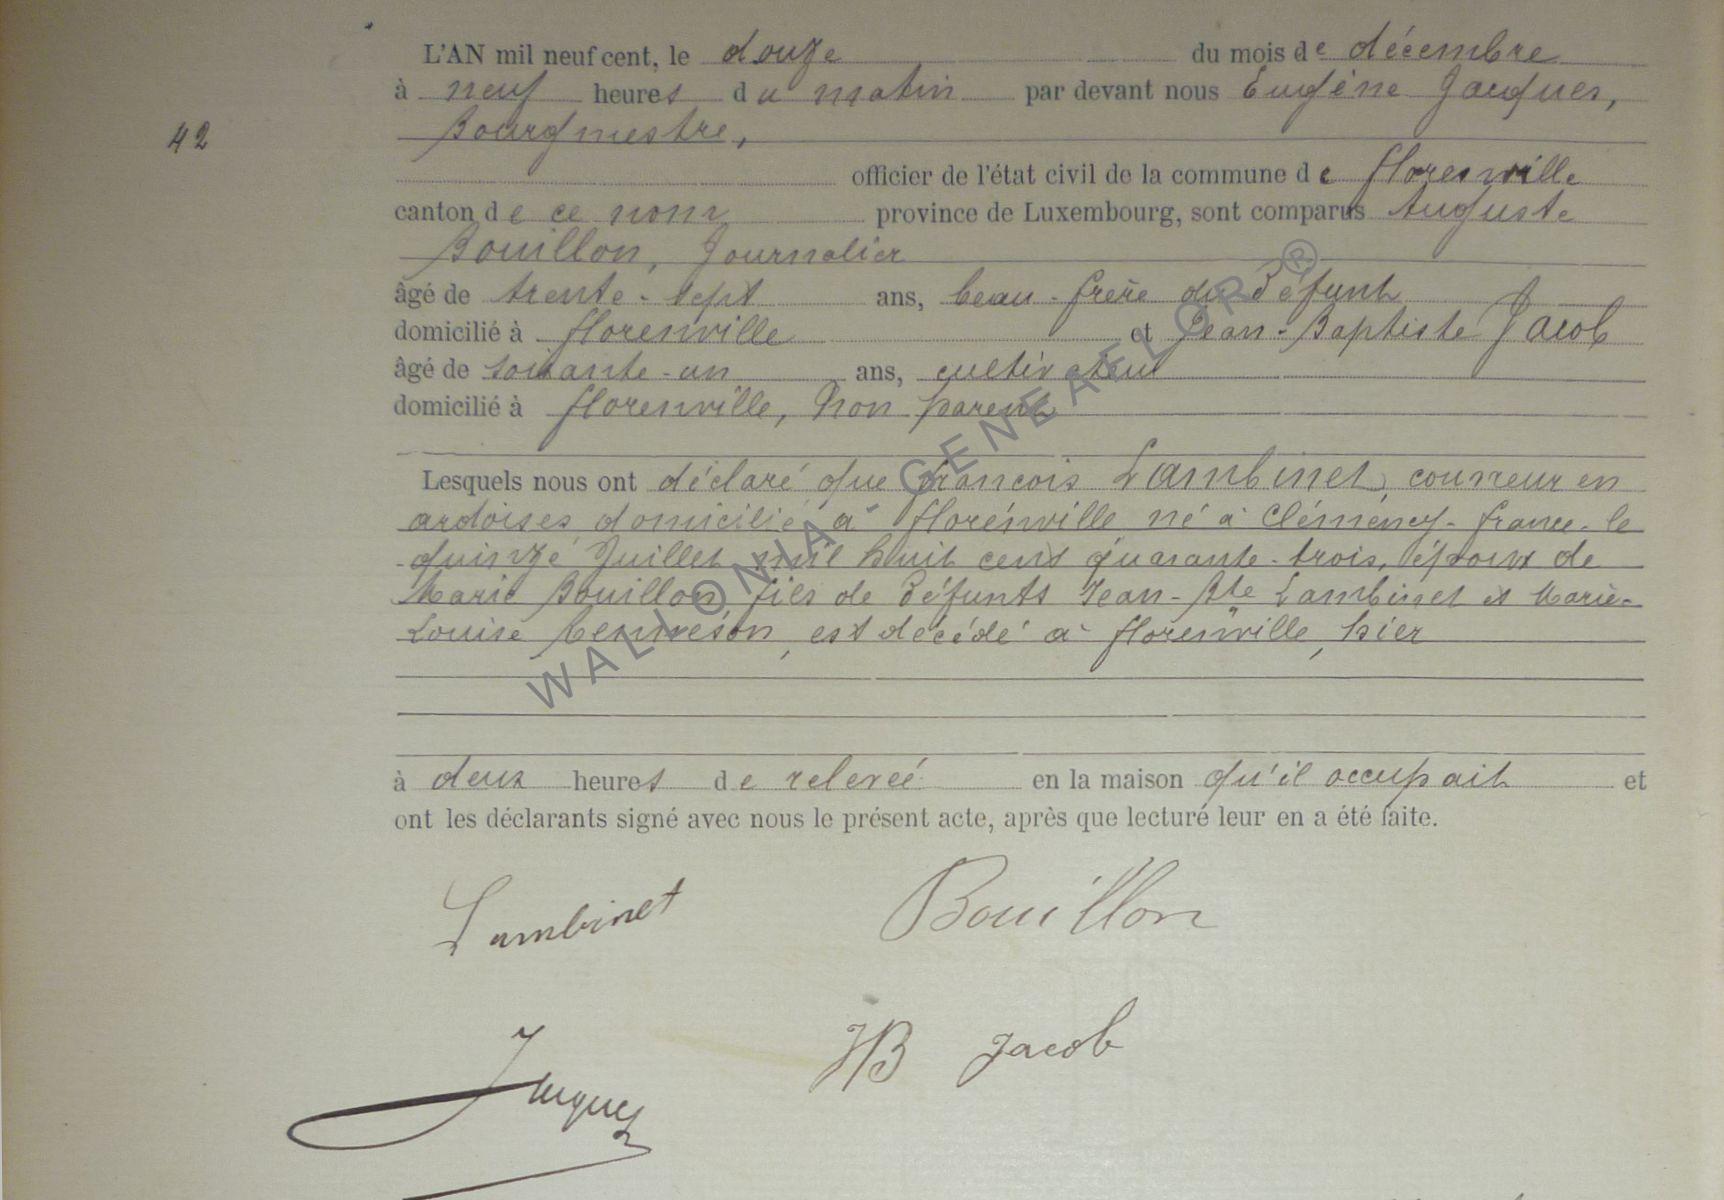 L'AN mil neuf cent, le douze du mois de décembre
à neuf heures du matin par devant nous Eugène Jacques,
Bourgmestre,
42
officier de l'état civil de la commune de florenville
canton de ce nom province de Luxembourg, sont comparus Auguste
Bouillon, Journalier
âgé de trente-sept ans, beau-frère du Défunt
domicilié à florenville et Jean-Baptiste Jacob
âgé de soixante-un ans, cultivateur
domicilié à florenville, Non parent
Lesquels nous ont déclaré que francois Lambinet, couvreur en
ardoises domicilié à florenville né à Clémency-france-le
quinze Juillet mil huit cent quarante-trois, époux de
Marie Bouillon, fils de Défunts Jean-Bte Lambinet et Marie-
Louise, est décédé à florenville, hier
à deux heures de relevée en la maison qu'il occupait et
ont les déclarants signé avec nous le présent acte, après que lecture leur en a été faite.
Lambinet Bouillon
Jacques JB Jacob
WALLONIA - GENEAELOR ®